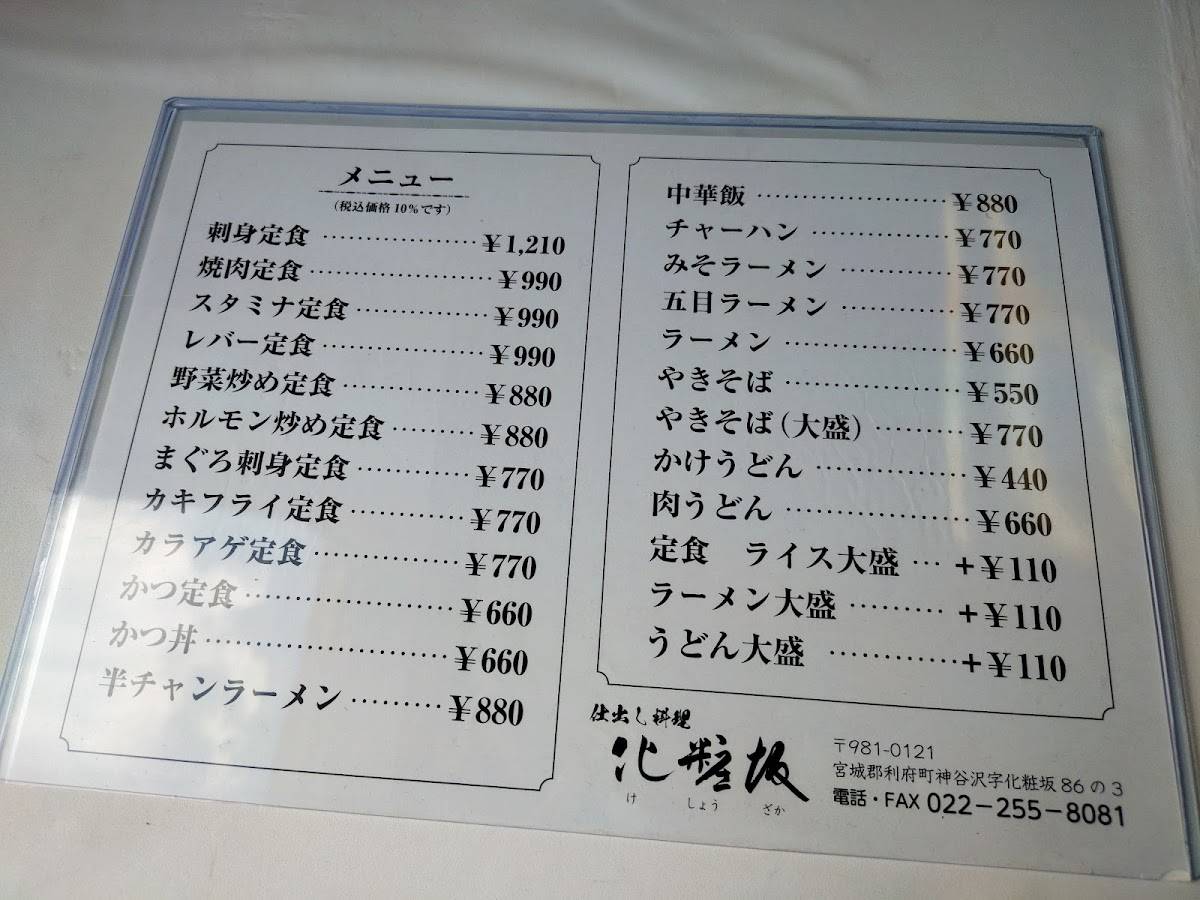 メニュー
(税込価格10%です)
刺身定食 ………………… ¥1,210
焼肉定食 ………………… ¥990
スタミナ定食 …………… ¥990
レバー定食 ……………… ¥990
野菜炒め定食 …………… ¥880
ホルモン炒め定食 ……… ¥880
まぐろ刺身定食 ………… ¥770
カキフライ定食 ………… ¥770
カラアゲ定食 …………… ¥770
かつ定食 ………………… ¥660
かつ丼 …………………… ¥660
半チャンラーメン ……… ¥880
中華飯 …………………… ¥880
チャーハン ……………… ¥770
みそラーメン …………… ¥770
五目ラーメン …………… ¥770
ラーメン ………………… ¥660
やきそば ………………… ¥550
やきそば(大盛) ………… ¥770
かけうどん ……………… ¥440
肉うどん ………………… ¥660
定食 ライス大盛 … +¥110
ラーメン大盛 ……… +¥110
うどん大盛 ………… +¥110
仕出し料理
化粧坂
け しょう ざか
〒981-0121
宮城郡利府町神谷沢字化粧坂86の3
電話・FAX 022-255-8081